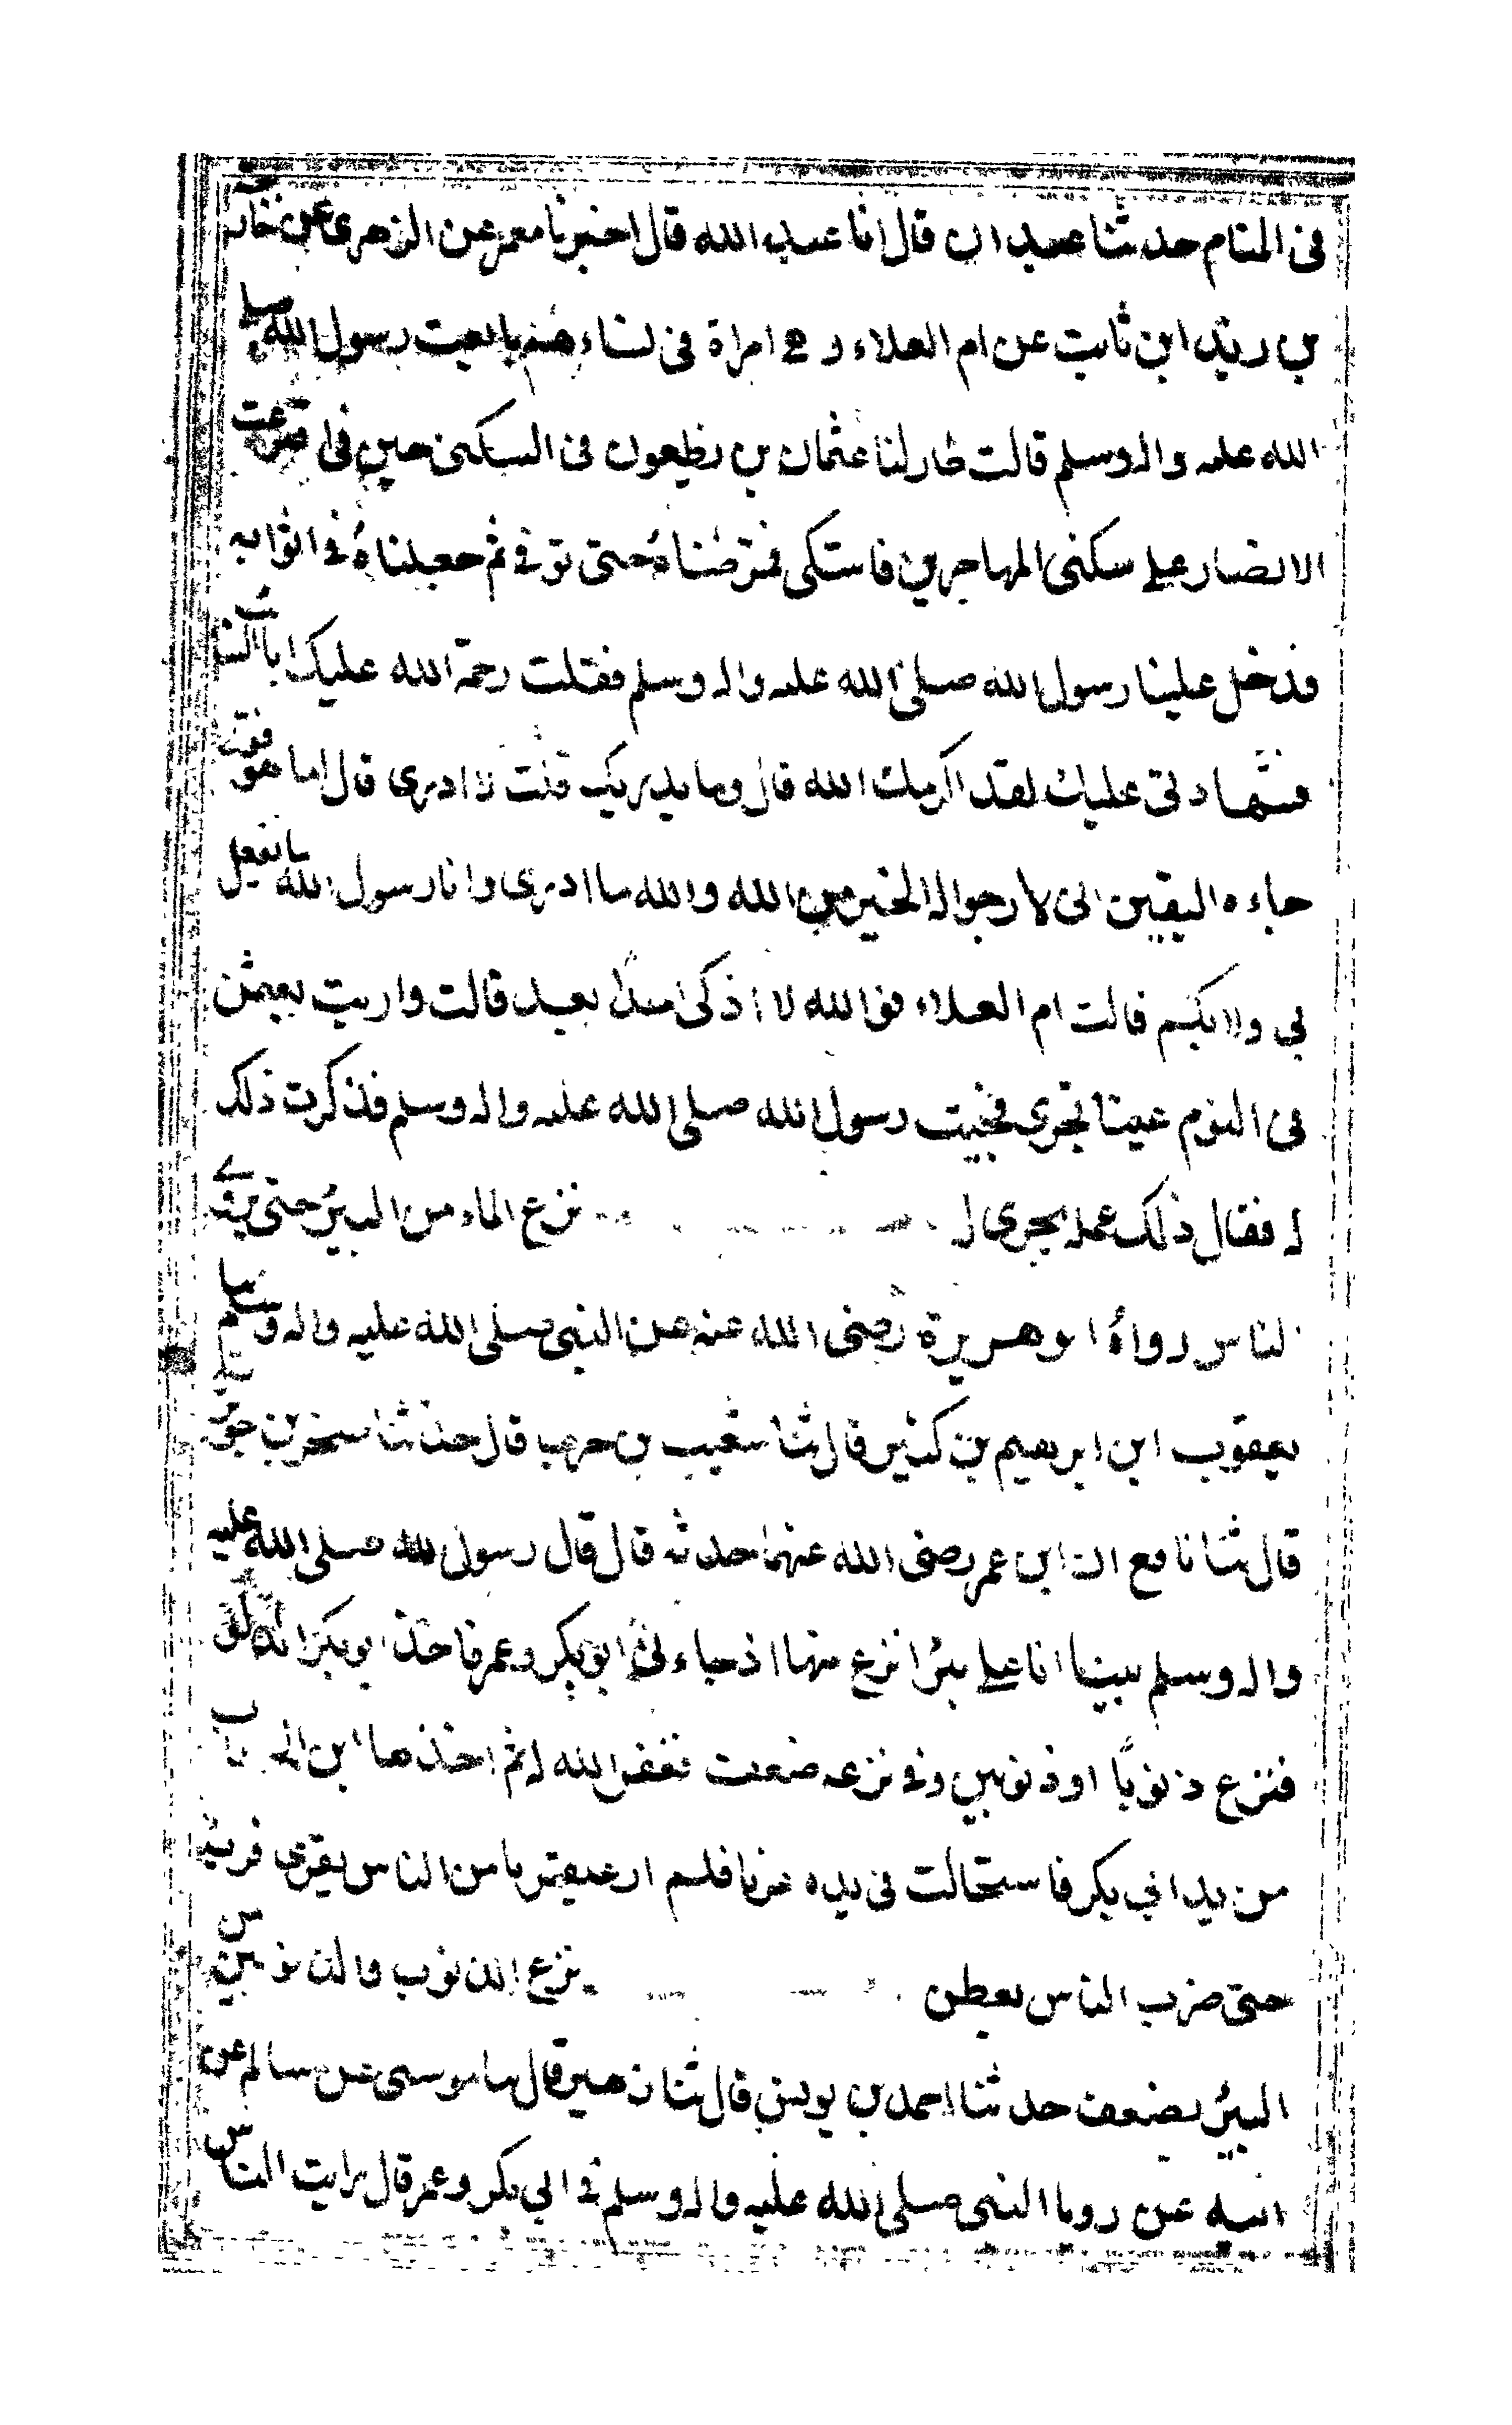 فى المنام حدثنا عبدان قال انا عبد الله قال اخبرنا معمر عن الزهرى عن خارجة
بن زيد ابن ثابت عن ام العلاء و هى امراة فى نساء هنم بايعت رسول الله صلى
الله عليه واله وسلم قالت طار لنا عثمان بن نظعون فى السكنى حين اقترعت
الانصار على سكنى المهاجرين فاستكى فمرضناه حتى توفى ثم جعلناه فى اثوابه
فدخل علينا رسول الله صلى الله عليه واله وسلم فقلت رحمة الله عليك ابا السائب
فشهادتى عليك لقد اكرمك الله قال وما يدريك قلت لا ادرى قال اما هو فقد
جاءه اليقين انى لارجو له الخير من الله والله ما ادرى وانا رسول الله ما يفعل
بى ولا بكم قالت ام العلاء فو الله لا اذكى احدا بعد قالت واريت بعيمثن
فى النوم عينا تجرى فجيت رسول الله صلى الله عليه واله وسلم فذكرت ذلك
له فقال ذلك عمله يجرى له نزع الماء من البير حتى يروى
لناس رواه ابو هريرة رضى الله عنه عن النبى صلى الله عليه واله وسلم
يعقوب ابن ابرهيم بن كثير قال ثنا شعيب بن حرب قال حدثنا صخر بن جوير
قال ثنا نافع ان ابن عمر رضى الله عنهما حدثه قال قال رسول الله صلى الله عليه
واله وسلم بينا انا على بئر انزع منها اذ جاء نى ابو بكر وعمر فاخذ ابو بكر الدلو
فنزع ذنوبا او ذنوبين وفى نزعه ضعف فغفر الله له ثم اخذها ابن الخطاب
من يد ابى بكر فاستحالت فى يده غربا فلم ار عبقريا من الناس يفرى فريه
حتى ضرب الناس بعطن نزع الذنوب والذنوبين من
البير بضعف حدثنا احمد بن يونس قال ثنا زهير قال ثنا موسى عن سالم عن
ابيه عن رويا النبى صلى الله عليه واله وسلم فى ابى بكر وعمر قال رايت الناس